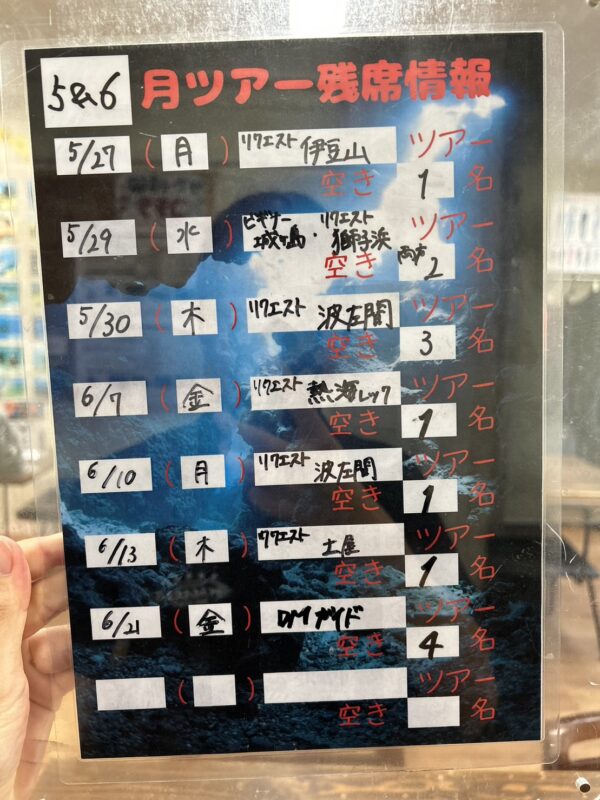 5&6 月ツアー残席情報
5/27 (月) リクエスト 伊豆山 ツアー
空き 1 名
5/29 (水) ビギナー 城ヶ島・リクエスト 獅子浜 ツアー
空き 両方 2 名
5/30 (木) リクエスト 波左間 ツアー
空き 3 名
6/7 (金) リクエスト 熱海レック ツアー
空き 1 名
6/10 (月) リクエスト 波左間 ツアー
空き 1 名
6/13 (木) リクエスト 土屋 ツアー
空き 1 名
6/21 (金) DMガイド ツアー
空き 4 名
( ) ツアー
空き 名